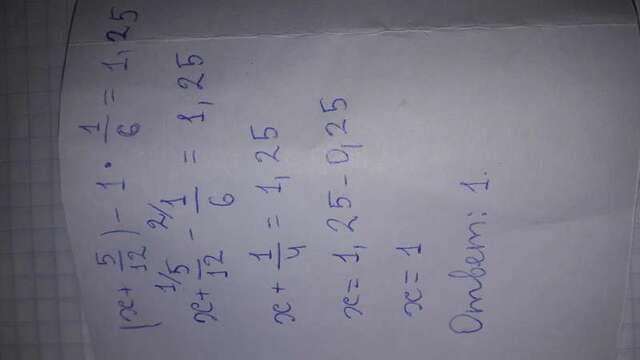 (x + 5/12) - 1 · 1/6 = 1,25
x + ¹⁄5/12 - ²⁄1/6 = 1,25
x + 1/4 = 1,25
x = 1,25 - 0,25
x = 1
Ответ: 1.